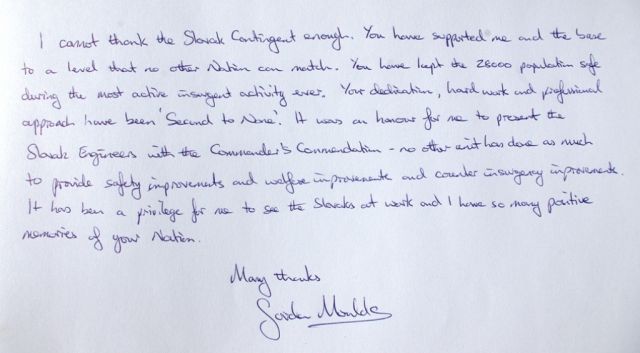 I cannot thank the Slovak Contingent enough. You have supported me and the base
to a level that no other Nation can match. You have kept the 26000 population safe
during the most active insurgent activity ever. Your dedication, hard work and professional
approach have been 'Second to None'. It was an honour for me to present the
Slovak Engineers with the Commander's Commendation - no other unit has done as much
to provide safety improvements and welfare improvements and counter insurgency improvements.
It has been a privilege for me to see the Slovaks at work and I have so many positive
memories of your Nation.
Many thanks
Gordon Moulds